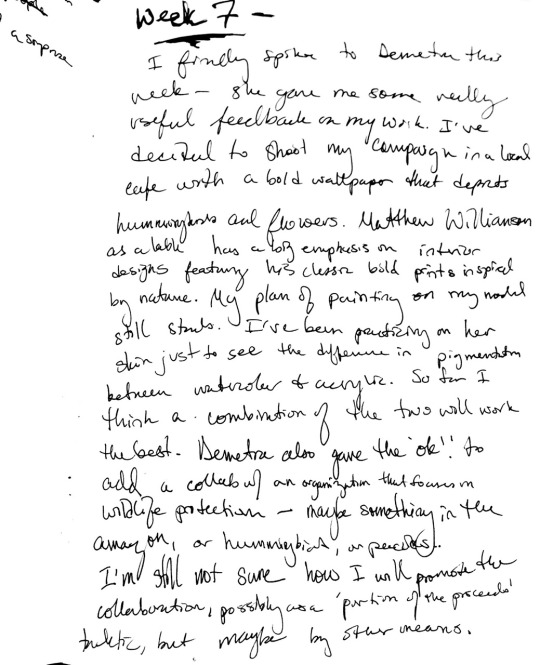 a surprise
Week 7 -
I finally spoke to Demetra this
week - she gave me some really
useful feedback on my work. I've
decided to shoot my campaign in a local
cafe with a bold wallpaper that depicts
hummingbirds and flowers. Matthew Williamson
as a label has a big emphasis on interior
designs featuring his classic bold prints inspired
by nature. My plan of painting on my model
still stands. I've been practicing on her
skin just to see the difference in pigmentation
between watercolor & acrylic. So far I
think a combination of the two will work
the best. Demetra also gave the 'ok'! to
add a collab w/ an organization that focuses on
wildlife protection - maybe something in the
amazon, or hummingbird, or peacocks.
I'm still not sure how I will promote the
collaboration, possibly as a 'portion of the proceeds'
tactic, but maybe by other means.